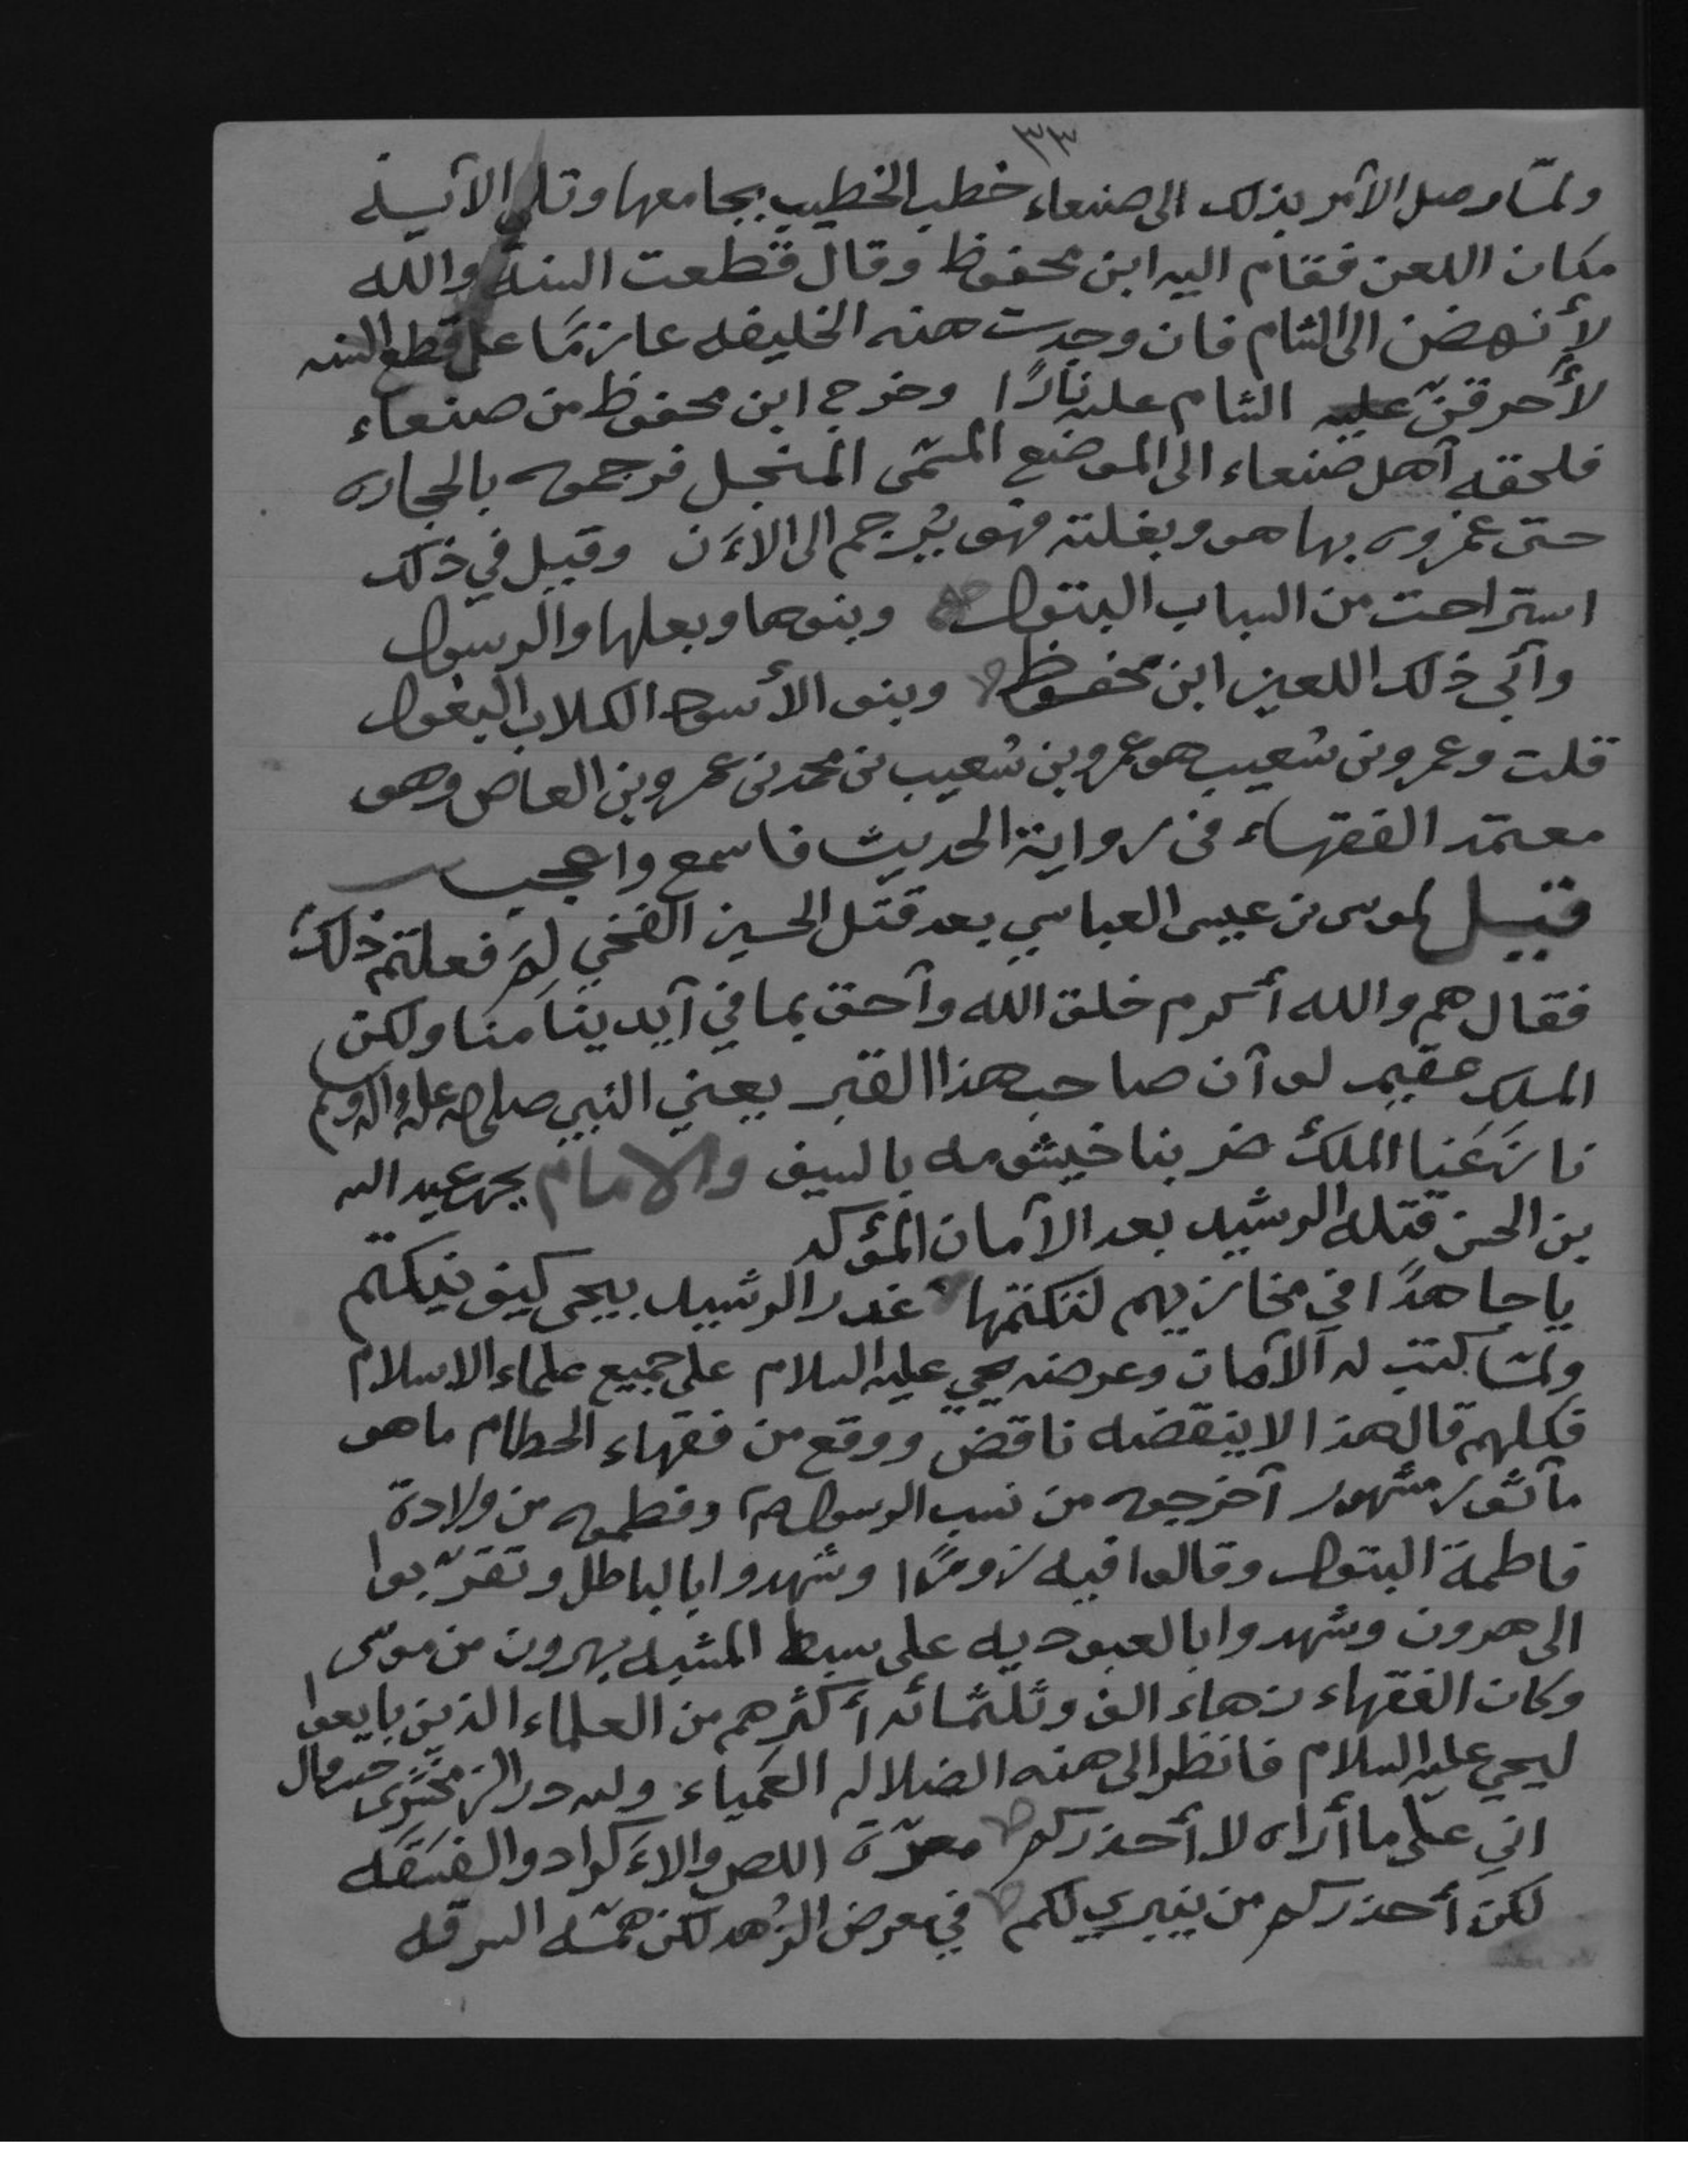 ٣٣
ولمّا وصل الأمر بذلك الى صنعاء خطب الخطيب بجامعها وتلى الآيـة
مكان اللعن فقام اليه ابن محفوظ وقال قطعت السنة والله
لأنهضن الى الشام فان وجدت هذه الخليفه عازمًا على قطع السنه
لأحرقنّ عليه الشام عليه نارًا وخرج ابن محفوظ من صنعاء
فلحقه أهل صنعاء الى الموضع المسمّى المنجل فرجموه بالحجاره
حتى غمروه بها هو وبغلته فهو يُرجم الى الاءَن وقيل في ذلك
استراحت من السباب البتول وبنوها وبعلها والرسول
وأبى ذلك اللعين ابن محفوظ وبنو الأسود الكلاب البغول
قلت وعمرو بن شعيب هو عمرو بن شعيب بن محمد بن عمرو بن العاص وهو
معتمد الفقهاء في رواية الحديث فاسمع واعجب
قيل لموسى بن عيسى العباسي بعد قتل الحسين الفخي لِمَ فعلتم ذلك
فقال هم والله أكرم خلق الله وأحق بما في أيدينا منا ولكن
الملك عقيم لو أن صاحب هذا القبر يعني النبي صلى الله عليه واله وسلم
نازَعَنا الملك ضربنا خيشومه بالسيف والامام يحيى بن عبد الله
بن الحسن قتله الرشيد بعد الأمان المؤكد
ياجاهدًا في مخازيهم لتكتمها غدر الرشيد بيحيى كيف ينكتم
ولمّا كتب له الأمان وعرضه يحيي عليه السلام على جميع علماء الاسلام
فكلهم قال هذا لاينقضه ناقض ووقع من فقهاء الحطام ماهو
مأثور مشهور أخرجوه من نسب الرسول صم وفطموه من ولادة
فاطمة البتول وقالوا فيه زورًا وشهدوا بالباطل وتقرّبوا
الى هرون وشهدوا بالعبوديه على سبط المشبه بهرون من موسى
وكان الفقهاء زهاء الف وثلثمائه أكثرهم من العلماء الذين بايعوا
ليحيي عليه السلام فانظر الى هذه الضلاله العَمياء ولله در الزمخشرى حيث قال
اني على ما أراه لا أحذركم معرّة اللص والاءَكراد والفسَقَه
لكن أحذركم من ينبري لكم في معرض الزُهد لكن همّه السرقه